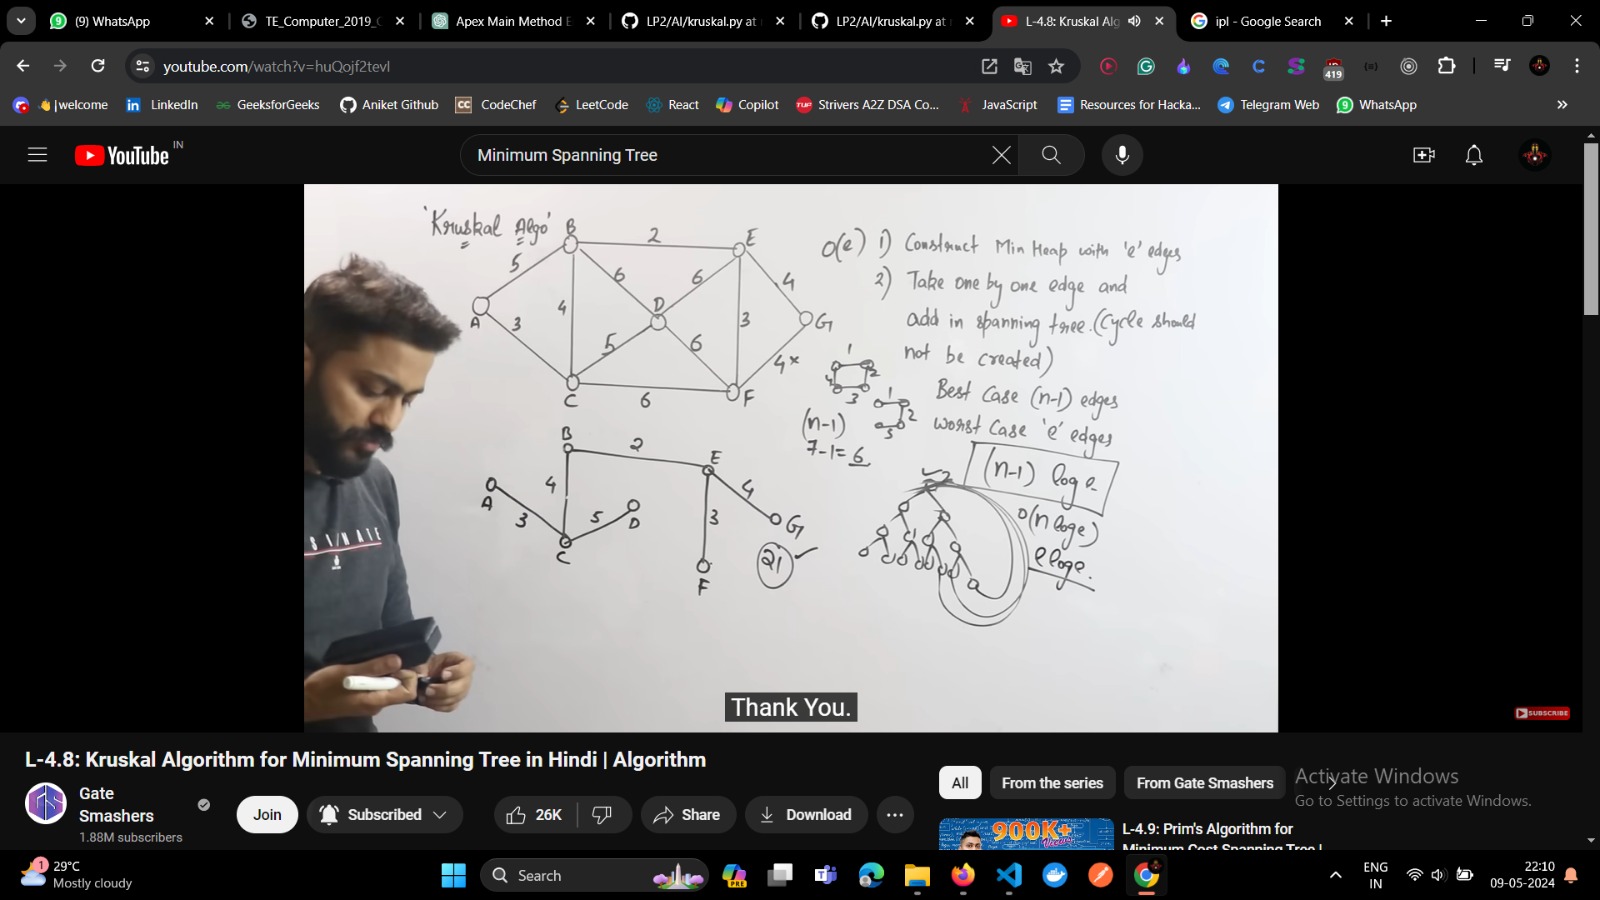 (9) WhatsApp
TE_Computer_2019_C
Apex Main Method E
LP2/AI/kruskal.py at
LP2/AI/kruskal.py at
L-4.8: Kruskal Alg
ipl - Google Search
youtube.com/watch?v=huQojf2tevI
419
|welcome
LinkedIn
GeeksforGeeks
Aniket Github
CC CodeChef
LeetCode
React
Copilot
TUF Strivers A2Z DSA Co...
JavaScript
Resources for Hacka...
Telegram Web
9 WhatsApp
YouTube IN
Minimum Spanning Tree
'Kruskal Algo'
B
2
E
5
6
6
4
A
4
D
G
3
3
5
6
4×
C
6
F
O(e) 1) Construct Min Heap with 'e' edges
2) Take one by one edge and
add in spanning tree. (Cycle should
not be created)
Best Case (n-1) edges
worst Case 'e' edges
1
2
3
1
2
3
(n-1)
7-1=6
(n-1) log e
O(n log e)
e log e.
B
2
E
4
4
A
3
5
D
3
G
C
F
21 ✓
Thank You.
SUBSCRIBE
L-4.8: Kruskal Algorithm for Minimum Spanning Tree in Hindi | Algorithm
Gate
Smashers
1.88M subscribers
Join
Subscribed
26K
Share
Download
All
From the series
From Gate Smashers
Activate Windows
Go to Settings to activate Windows.
900K+
L-4.9: Prim's Algorithm for
Minimum Cost Spanning Tree |
1
29°C
Mostly cloudy
Search
PRE
ENG
IN
22:10
09-05-2024